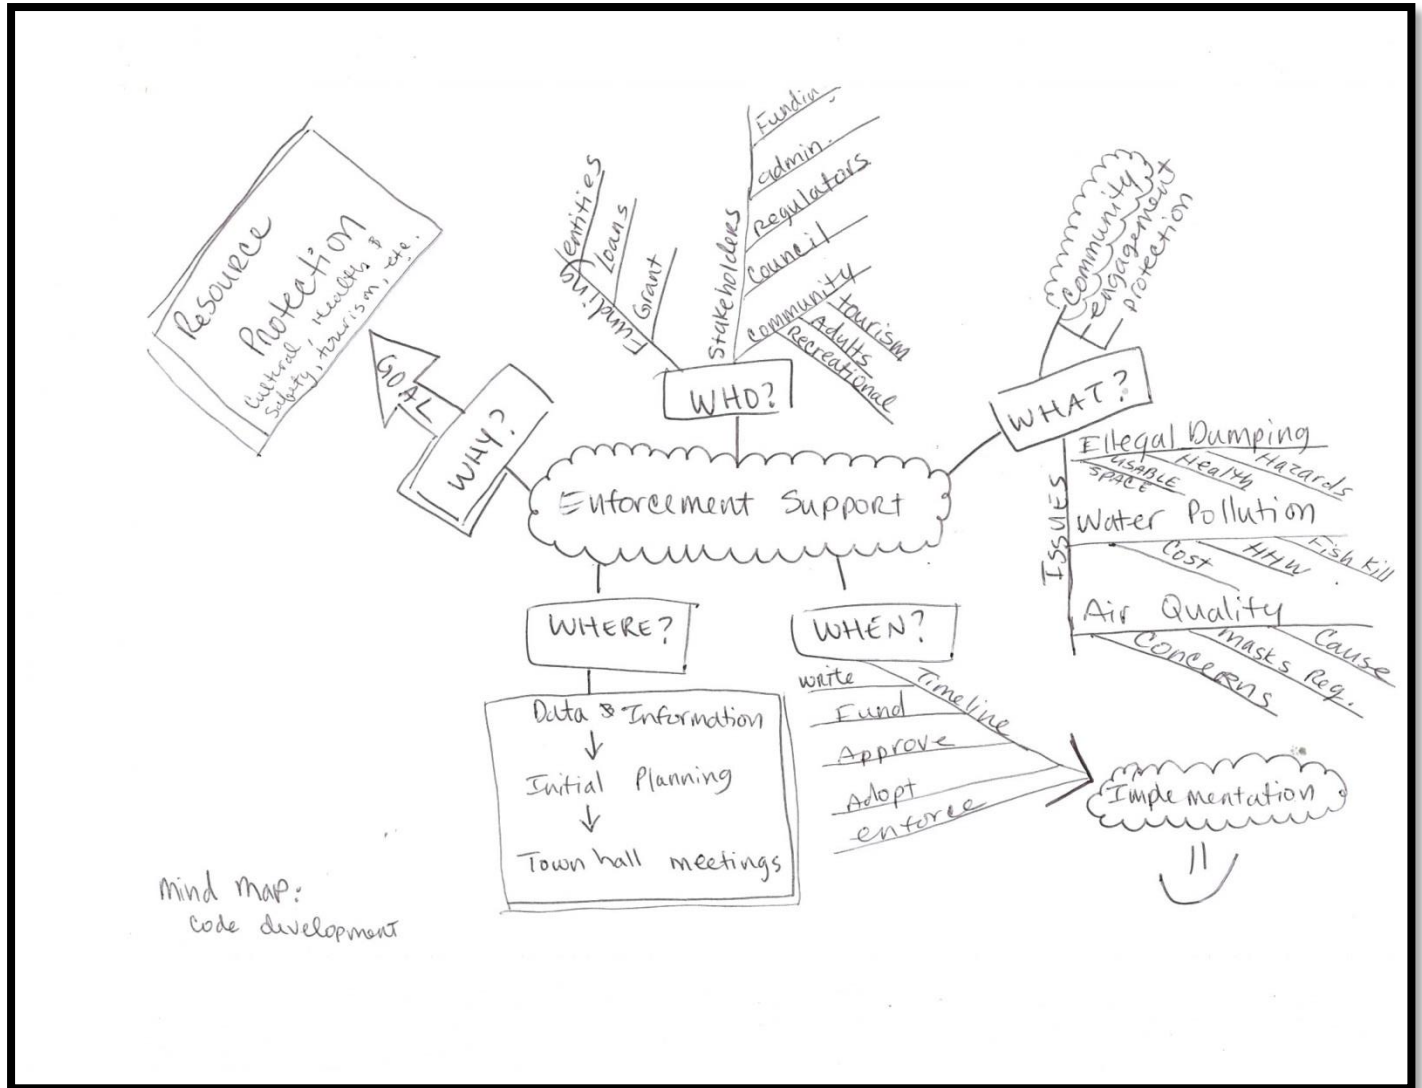 Resource
Protection
Cultural, Health &
Safety, tourism, etc.
GOAL
WHY?
Funding
entities
Loans
Grant
Stakeholders
Fundin
admin.
Regulators
Council
Community
tourism
Adults
Recreational
WHO?
Community
engagement
protection
WHAT?
Issues
Ellegal Dumping
USABLE
SPACE
Health
Hazards
Water Pollution
Cost
HHW
Fish Kill
Air Quality
Concerns
masks Req.
Cause
Enforcement Support
WHERE?
Data & Information
Initial Planning
Town hall meetings
WHEN?
Timeline
write
Fund
Approve
Adopt
enforce
Implementation
mind map:
code development